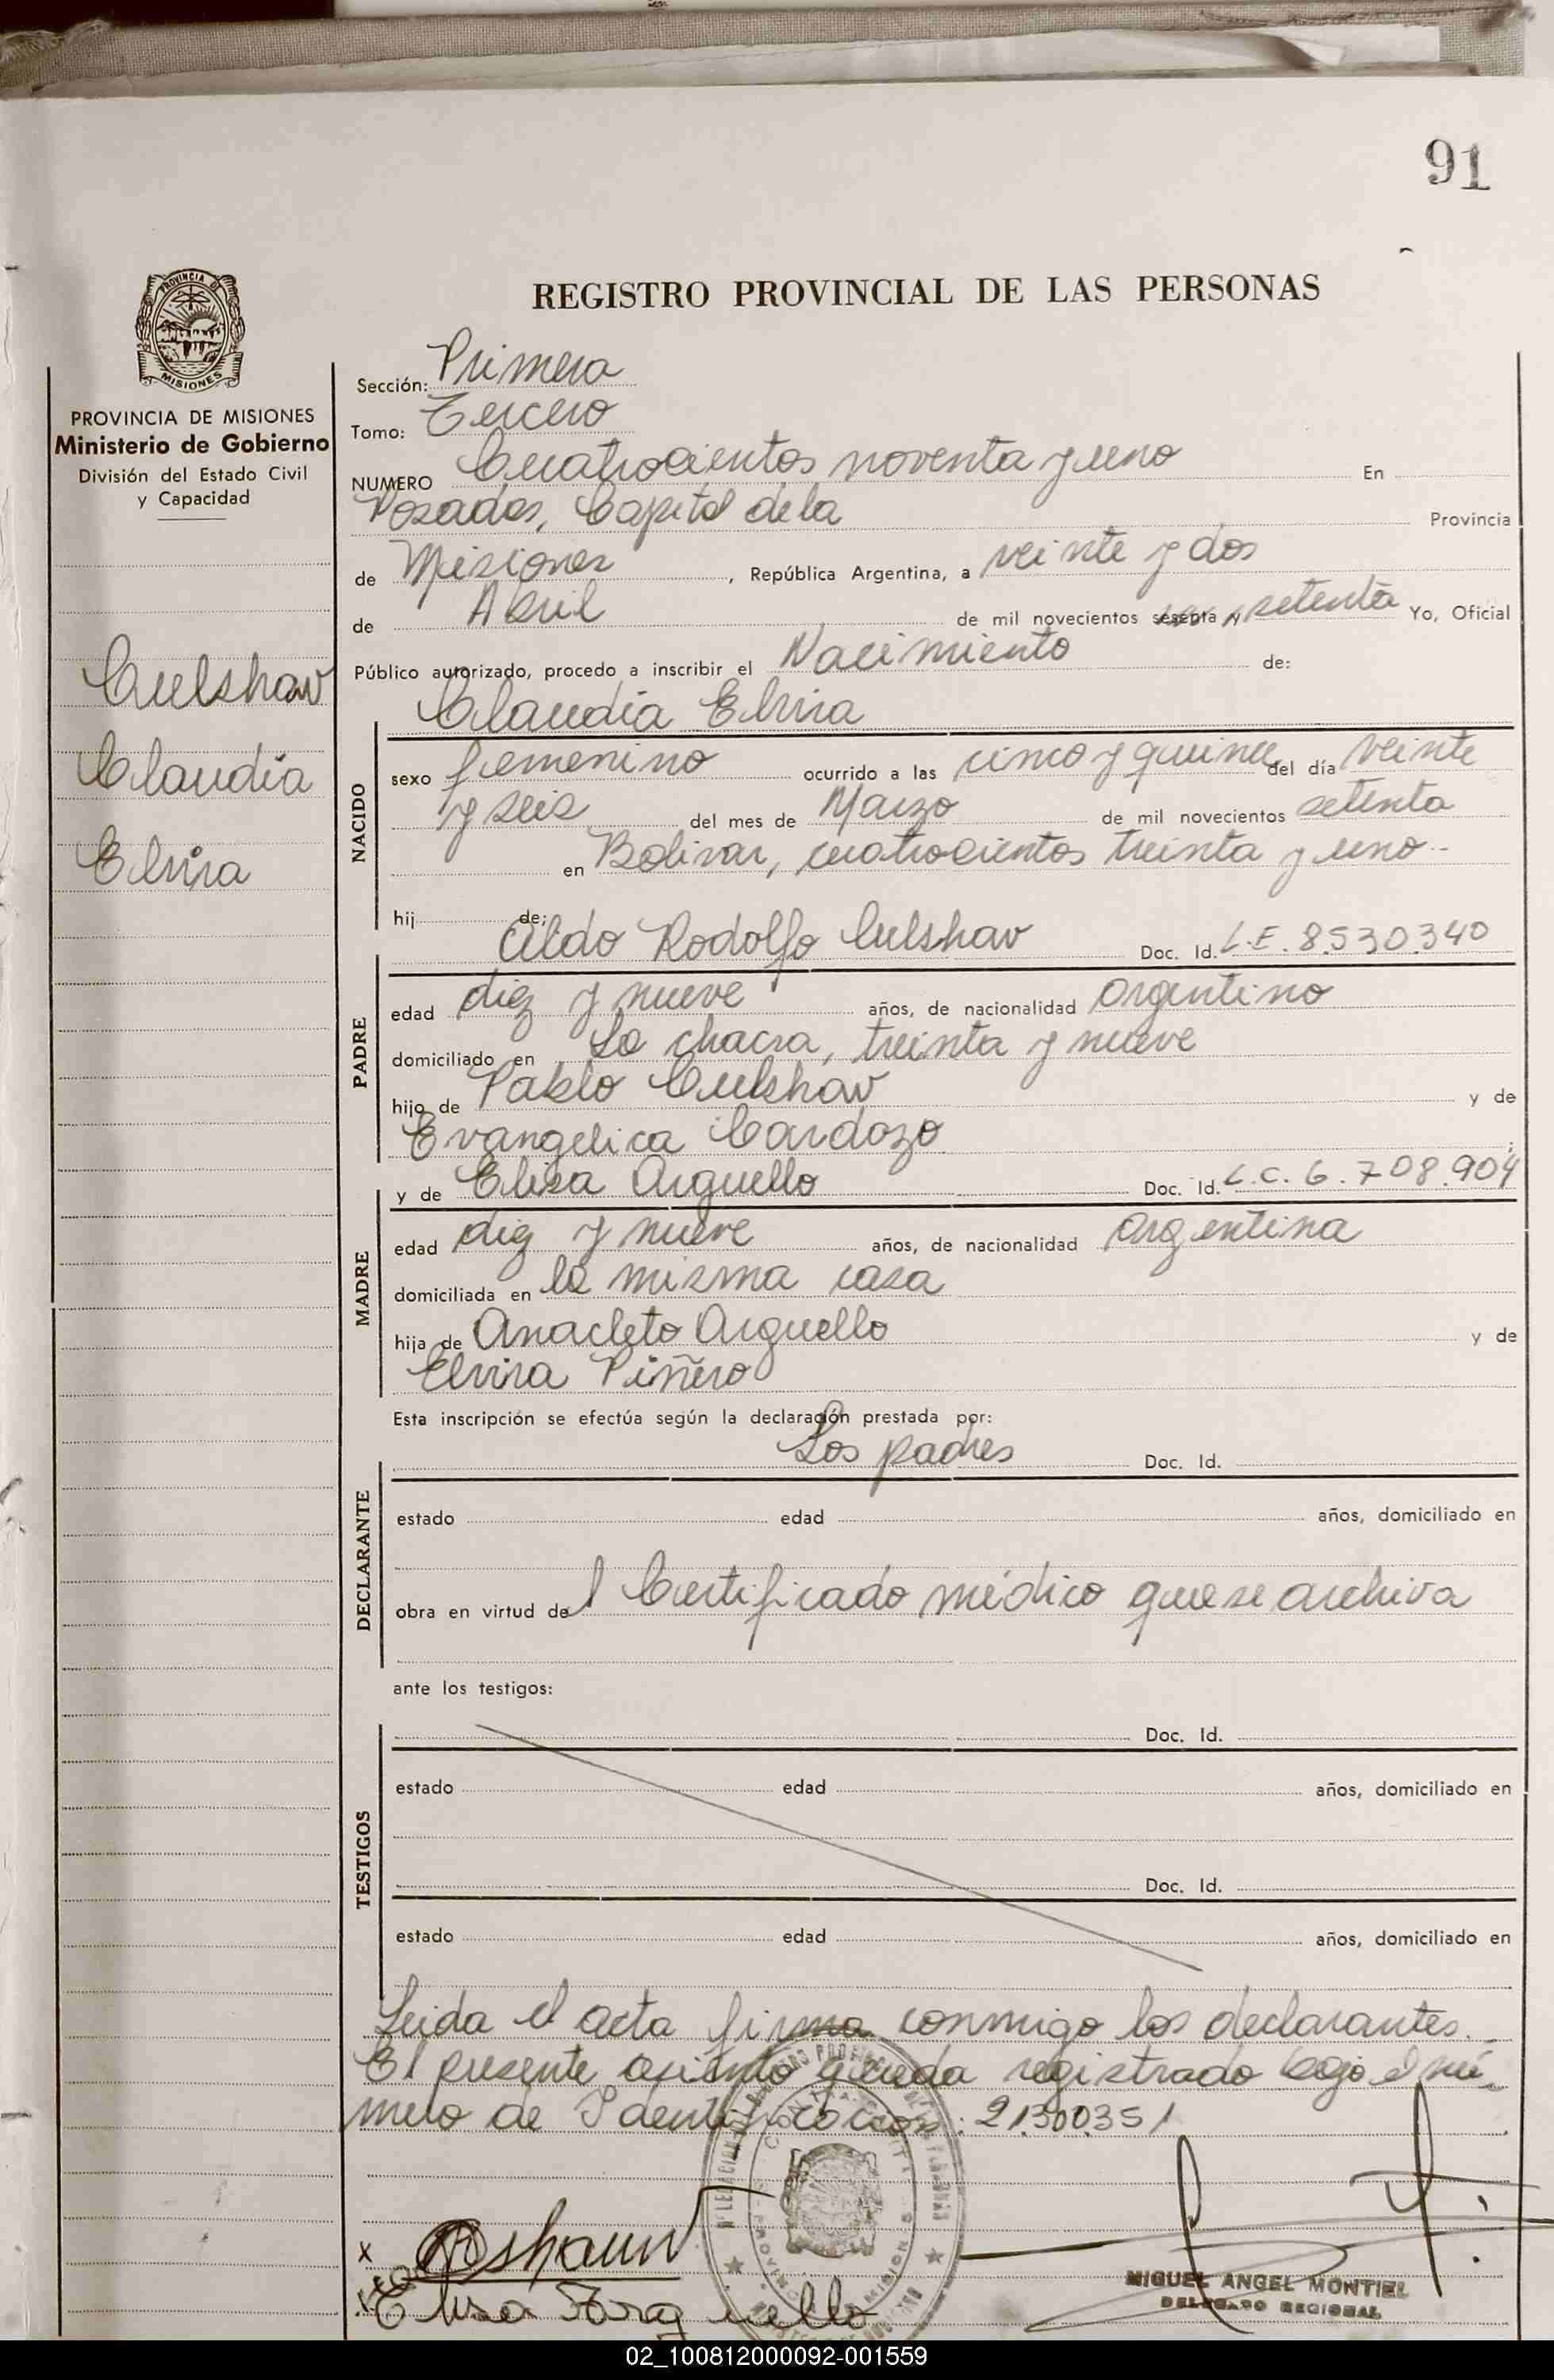 91
PROVINCIA DE
MISIONES
PROVINCIA DE MISIONES
Ministerio de Gobierno
División del Estado Civil
y Capacidad
Culshaw
Claudia
Elvira
REGISTRO PROVINCIAL DE LAS PERSONAS
Sección: Primera
Tomo: Tercero
NUMERO Cuatrocientos noventa y uno En
Posadas, Capital de la Provincia
de Misiones, República Argentina, a veinte y dos
de Abril de mil novecientos sesenta y setenta Yo, Oficial
Público autorizado, procedo a inscribir el Nacimiento de:
Claudia Elvira
NACIDO
sexo femenino ocurrido a las cinco y quince del día veinte
y seis del mes de Marzo de mil novecientos setenta
en Bolivar, cuatrocientos treinta y uno
hij de;
Aldo Rodolfo Culshaw Doc. Id. L.E. 8.530.340
PADRE
edad diez y nueve años, de nacionalidad argentino
domiciliado en La chacra, treinta y nueve
hijo de Pablo Culshaw y de
Evangelica Cardozo;
y de Elisa Arguello Doc. Id. L.C. 6.708.904
MADRE
edad diez y nueve años, de nacionalidad argentina
domiciliada en la misma casa
hija de Anacleto Arguello y de
Elvira Piñero
Esta inscripción se efectúa según la declaración prestada por:
Los padres Doc. Id.
DECLARANTE
estado edad años, domiciliado en
obra en virtud del Certificado médico que se archiva
ante los testigos:
Doc. Id.
TESTIGOS
estado edad años, domiciliado en
Doc. Id.
estado edad años, domiciliado en
Leida el acta firma conmigo los declarantes.
El presente asiento queda registrado bajo el nú-
mero de Identificacion: 21.300.351
x
Elisa Arguello
MIGUEL ANGEL MONTIEL
DELEGADO REGIONAL
02_100812000092-001559